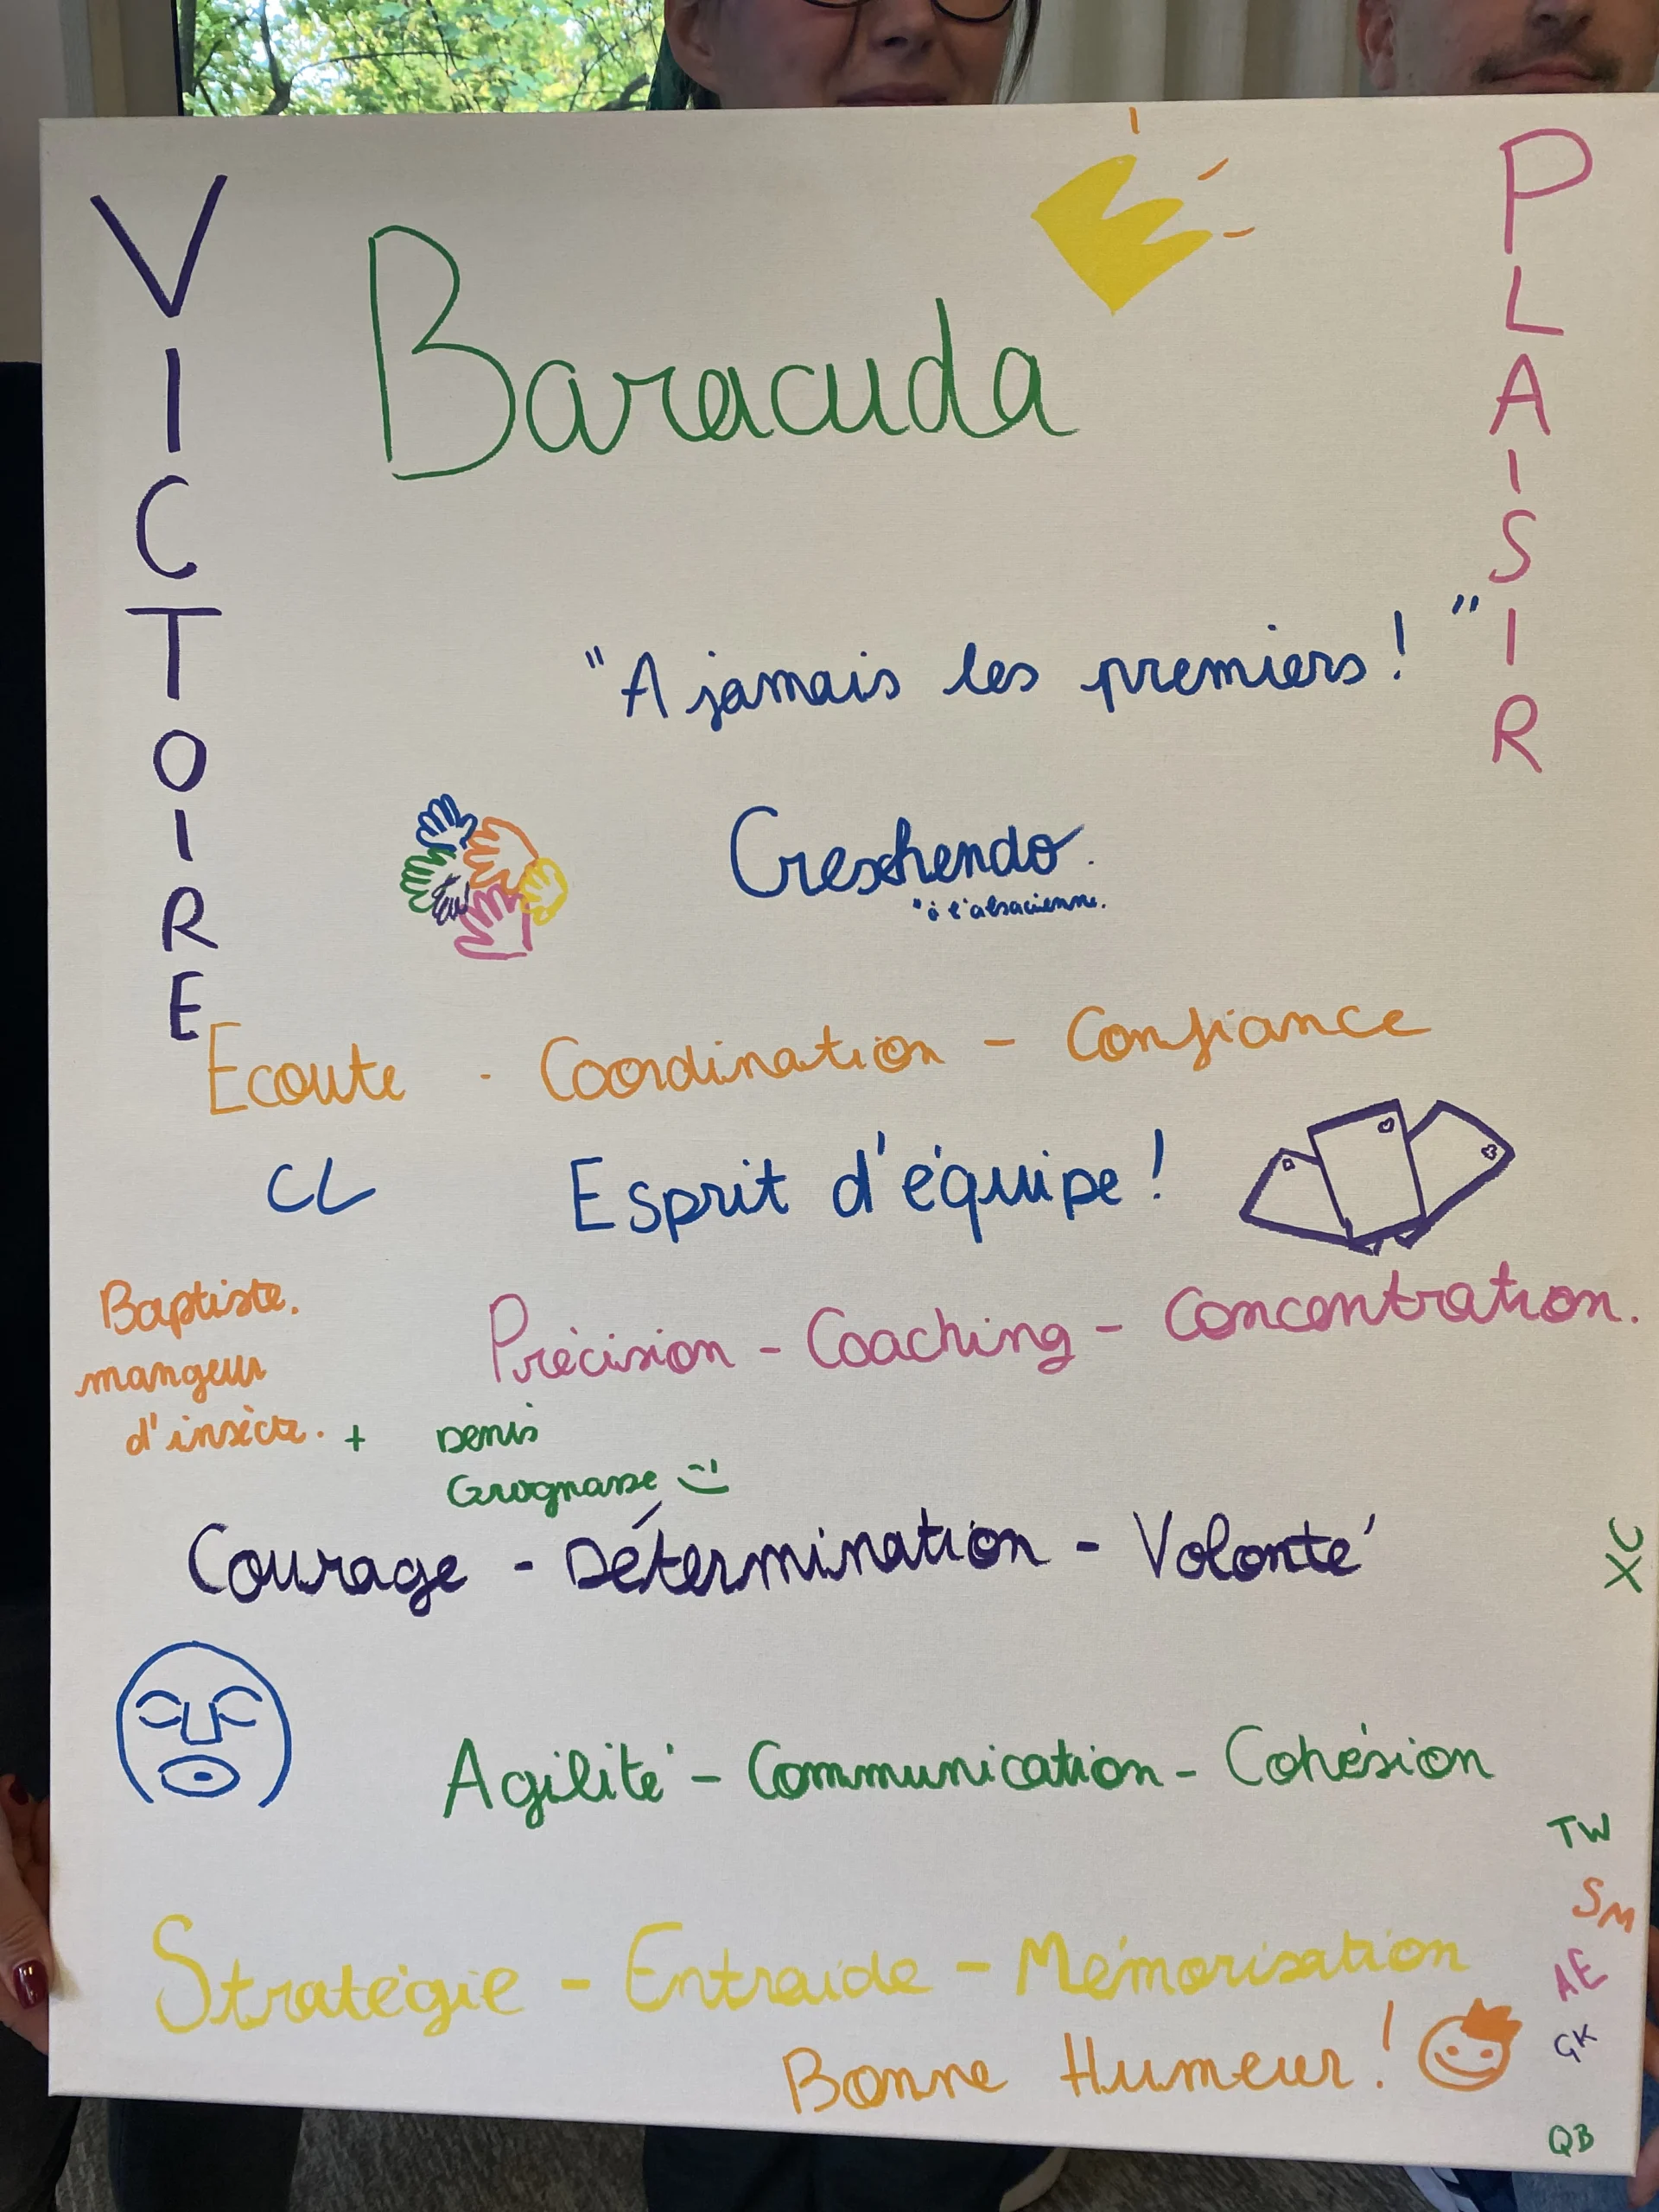 VICTOIRE
PLAISIR
Baracuda
"A jamais les premiers ! "
Creschendo.
"à l'alsacienne.
Ecoute - Coordination - Confiance
CL
Esprit d'équipe !
Précision - Coaching - Concentration.
Baptiste.
mangeur
d'insècte. + Denis
Grognasse
Courage - Détermination - Volonté
XC
Agilité - Communication - Cohésion
TW
SM
Stratégie - Entraide - Mémorisation
AE
GK
Bonne Humeur !
QB